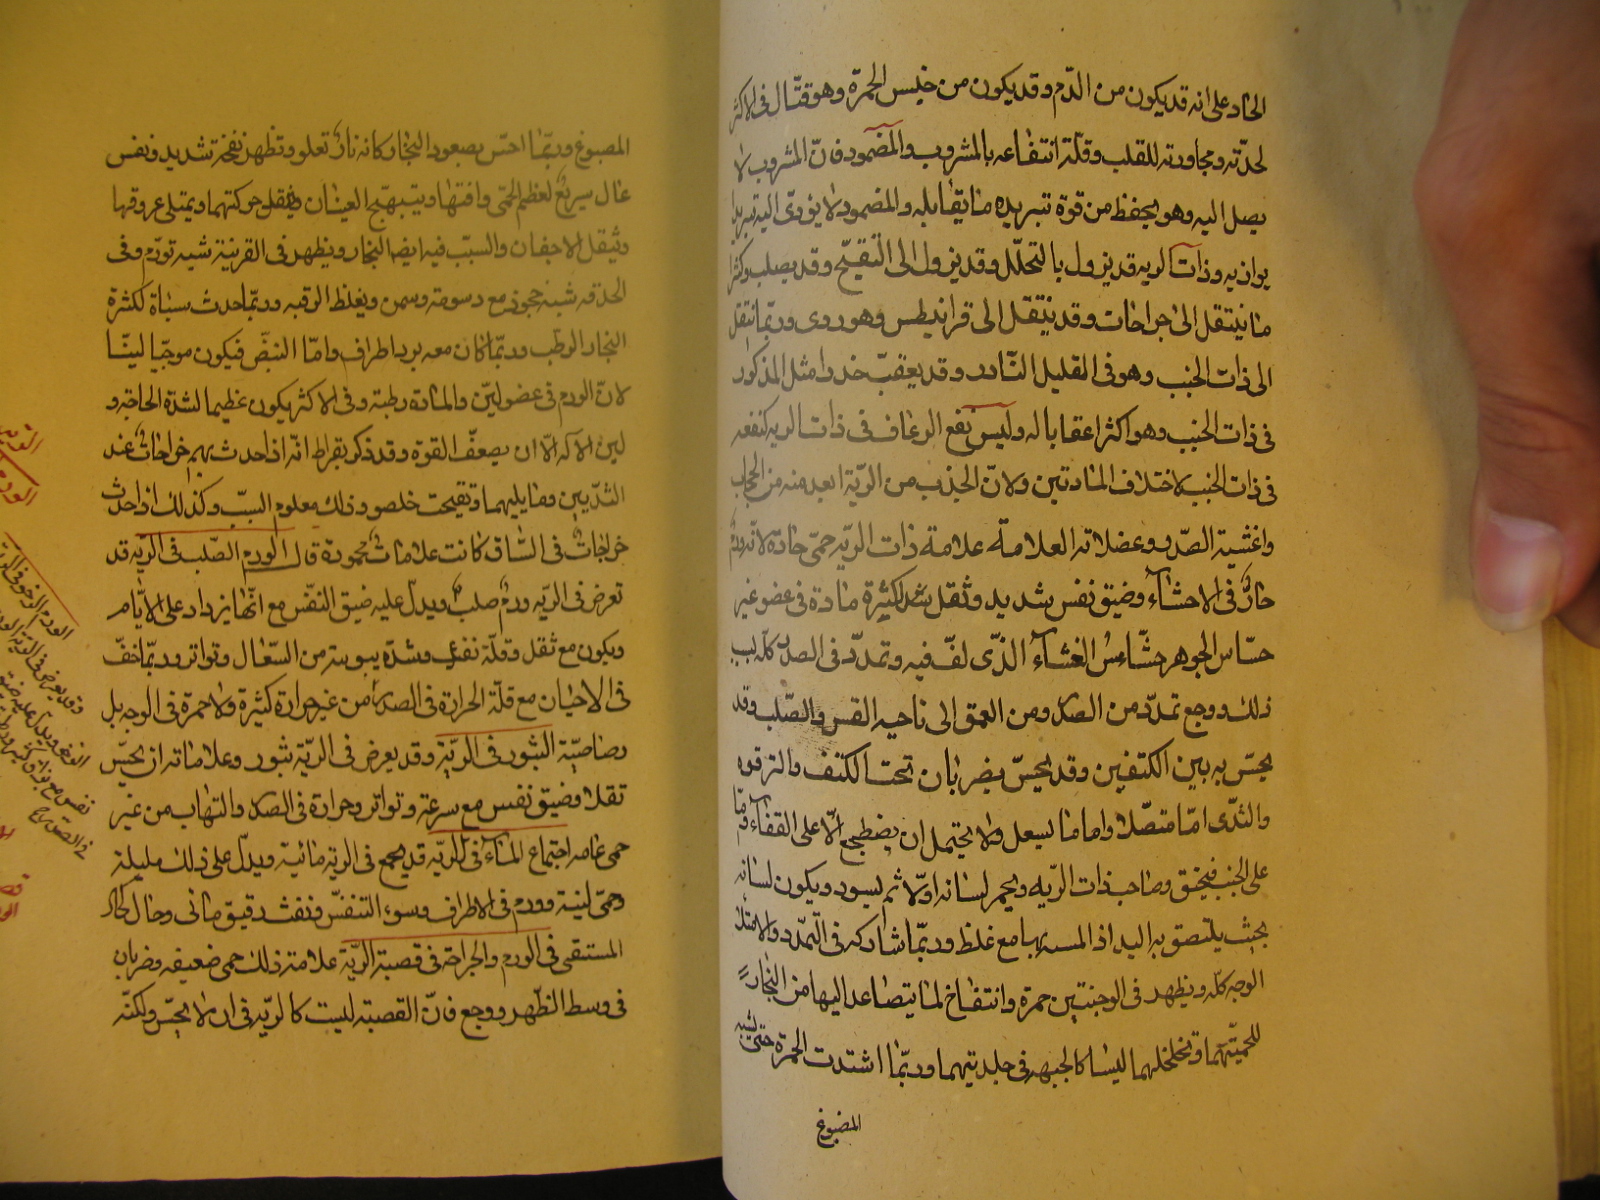 الحاد على انه قد يكون من الدّم وقد يكون من جنس الحمرة وهو قتّال فى الاكثر
لحدّته ومجاورته للقلب وقلّة انتفاعه بالمشروب والمضمود فانّ المشروب لا
يصل اليه وهو يحفظ من قوة تبريده ما يقابله والمضمود لا يؤدى اليه تبريدا
يوازيه وذات الريه قد يزول بالتحلّل وقد يزول الى التقيّح وقد يصلب وكثيرا
ما ينتقل الى جراحات وقد ينتقل الى قرانيطس وهو ردى وربّما انتقل
الى ذات الجنب وهو فى القليل النّادر وقد يعقب خدرا مثل المذكور
فى ذات الجنب وهو اكثر اعقابا له وليس نفع الرعاف فى ذات الريه كنفعه
فى ذات الجنب لاختلاف المادتين ولانّ الجذب من الريّة ابعد منه من الحجاب
واغشية الصّدر وعضلاته العلامة علامة ذات الريه حمّى حادة لانّه ورم
حارّ فى الاحشآء وضيق نفس شديد وثقل لكثرة مادة فى عضو غير
حسّاس الجوهر حسّاس الغشآء الذّى لفّ فيه وتمدّد فى الصدر كلّه بسبب
ذلك ووجع تمدّد من الصدر ومن العمق الى ناحيه القس والصّلب وقد
يحسّ به بين الكتفين وقد يحسّ بضربان تحت الكتف والترقوه
والثدّى امّا متصّلا واما ما يسعل ولا يحتمل ان يضطجع الّا على القفآء وامّا
على الجنب فيختق وصاحب ذات الريه ويحمر لسانه اولا ثم يسود ويكون لسانه
بحيث يلتصق به اليد اذا لمسه بها مع غلظ وربّما شاركه فى التّمدّد والامتلا
الوجه كلّه ويظهر فى الوجنتين حمرة وانتفاخ لما يتصاعد اليها من البخار
للحميّتهما وتخلخلهما ليسا كالجبهه فى جلديتهما وربّما اشتدت الحمرة حتى يشبه
المصبوغ
المصبوغ وربّما احسّ بصعود البخار كانه نار تعلو وتظهر نفخة شديد ونفس
عال سريع لعظم الحمّى وافتها ويتبهيج العينان وثقل حركتهما ويمتلى عروقها
وتثقل الاجفان والسبب فيه ايضا البخار ويظهر فى القرنية شبه تورّم وفى
الحدقه شبه جحوظ مع دسومة وسمن ويغلظ الرقبه وربّما حدث سبات لكثرة
البخار الرطب وربّما كان معه برد اطراف وامّا النبض فيكون موجيّا ليّنا
لانّ الورم فى عضو ليّن والمادة رطبة وفى الاكثر يكون عظيما لشدة الحاجه و
لين الآله الّا ان يضعف القوة وقد ذكر بقراط انّه اذا حدث بهم خراجات عند
الثدّيين وما يليهما وتقيحت خلصو وذلك معلوم السبب وكذلك اذا حدث
خراجات فى السّاق كانت علامات محمودة قال الورم الصّلب فى الريّه قد
تعرض فى الريّه ورم صلب ويدلّ عليه ضيق النفّس مع انّها يزداد على الايّام
ويكون مع ثقل وقلّة نفث وشدّة يبوسة من السّعال وتواتر وربّما خفّ
فى الاحيان مع قلّة الحرارة فى الصدر من غير حرارة كثيرة ولا حمرة فى الوجه بل
رصاصيّة البثور فى الريّة وقد يعرض فى الريّة بثور وعلاماته ان يحسّ
ثقلا وضيق نفس مع سرعة وتواتر وحرارة فى الصدر والتهاب من غير
حمى عامه اجتماع المآء فى الريّه قد يجمع فى الريّة مائية ويدلّ على ذلك مليلة
وحمّى لينة وورم فى الاطراف وسوء التنفسّ ونفث رقيق مائى وحال كحال
المستسقى فى الورم والجراحة فى قصبة الريّة علامة ذلك حمى ضعيفه وضربان
فى وسط الظّهر ووجع فانّ القصبة ليست كالريّه فى ان لا يحسّ ولكنّه
الورم الرخو فى الريّة
وقد يعرض فى الريّة